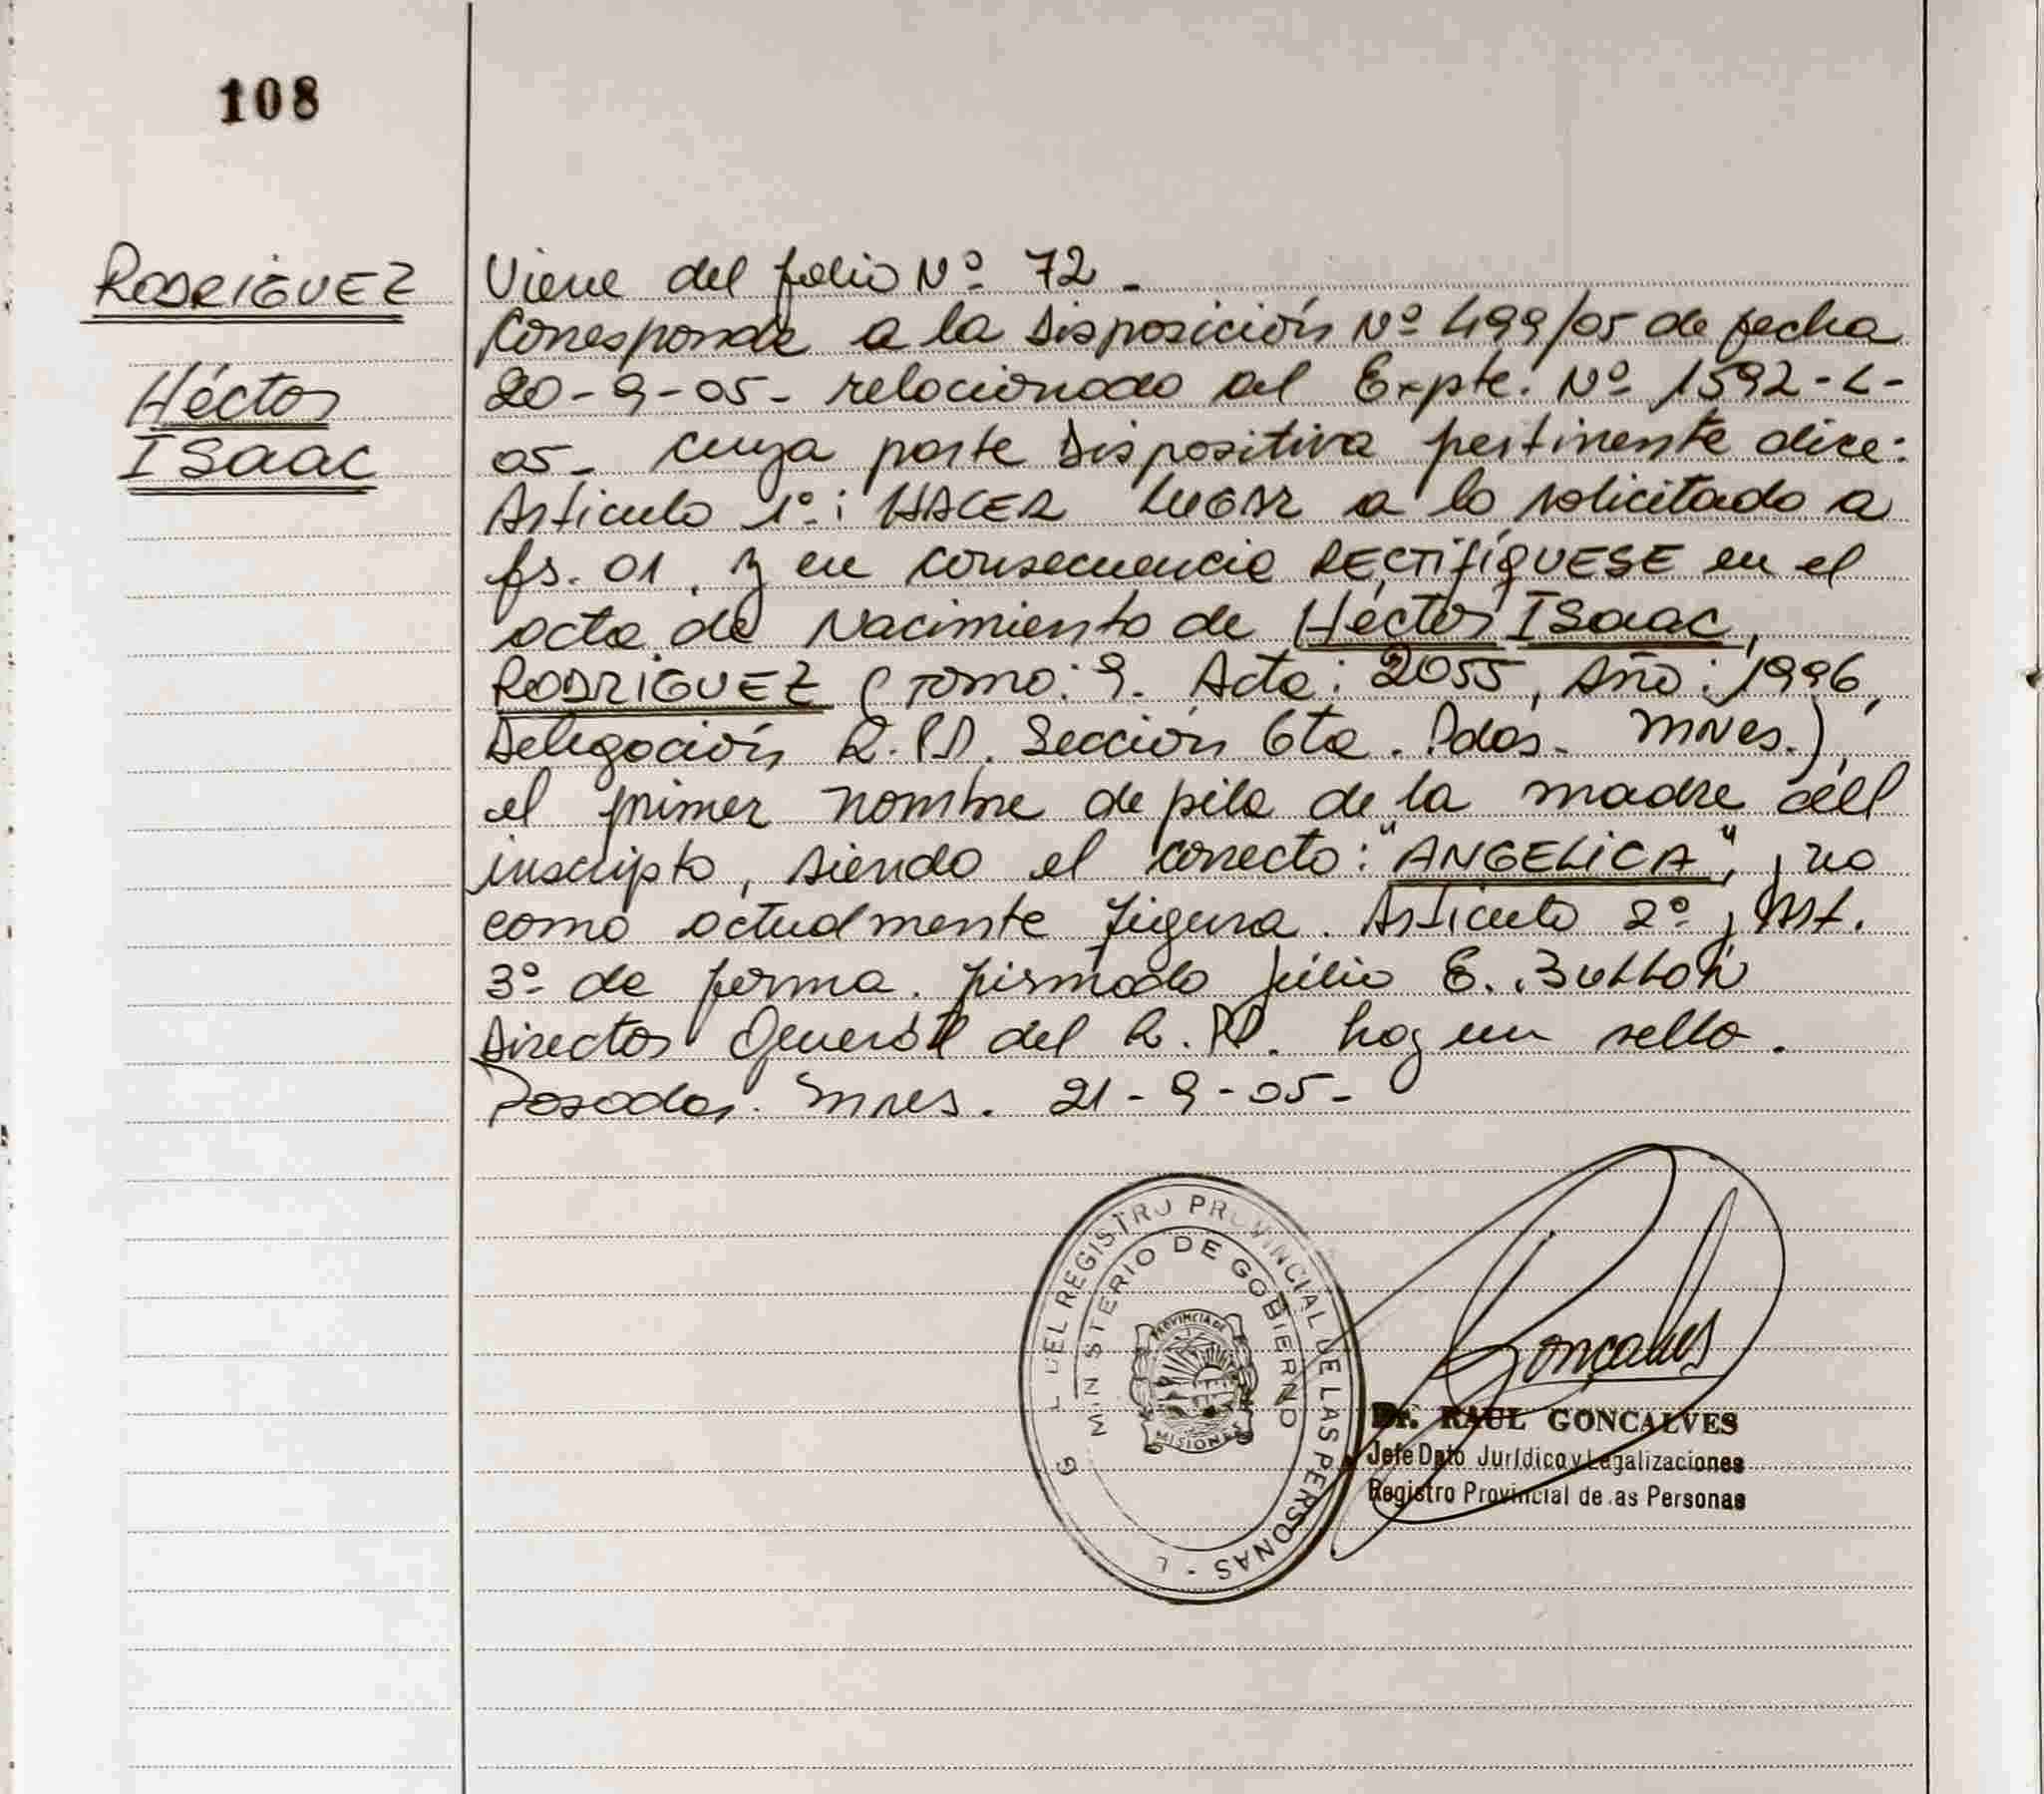 108
RODRIGUEZ
Héctor
ISaac
Viene del folio Nº 72.-
Corresponde a la Disposición Nº 499/05 de fecha
20-9-05- relacionado al Expte. Nº 1592-L-
05- cuya parte Dispositiva pertinente dice:
Artículo 1º: HACER LUGAR a lo solicitado a
fs. 01. y en consecuencia RECTIFÍQUESE en el
acta de Nacimiento de Héctor ISaac,
RODRIGUEZ (Tomo: 9. Acta: 2055, Año: 1996,
Delegación R.PP. Sección 6ta. Pdas. Mnes.),
el primer nombre de pila de la madre del
inscripto, siendo el correcto: "ANGELICA", y no
como actualmente figura. Artículo 2º y Art.
3º de forma. firmado Julio E.
Director General del R.PP. hay un sello.
Posadas. Mnes. 21-9-05-
DEL REGISTRO PROVINCIAL DE LAS PERSONAS
MINISTERIO DE GOBIERNO
PROVINCIA DE
MISIONES
Goncalves
Dr. RAUL GONCALVES
Jefe Dpto Jurídico y Legalizaciones
Registro Provincial de as Personas